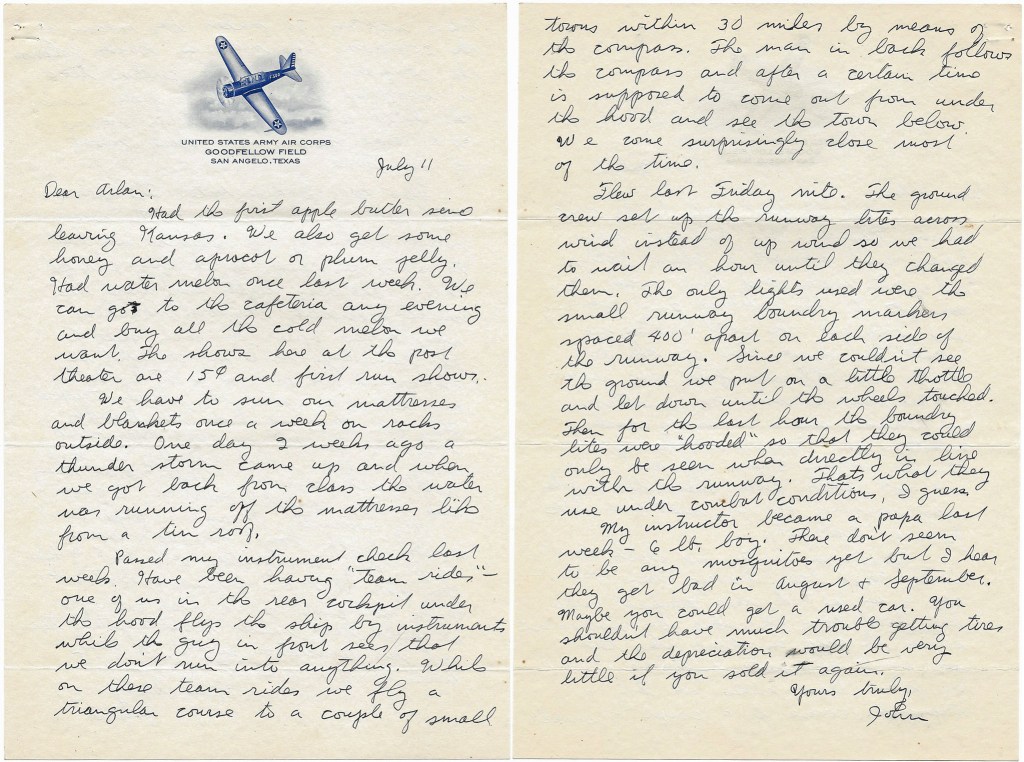 UNITED STATES ARMY AIR CORPS
GOODFELLOW FIELD
SAN ANGELO, TEXAS
July 11
Dear Arlan:
Had the first apple butter sinc
leaving Kansas. We also get some
honey and aprocot or plum jelly.
Had water melon once last week. We
can go to the cafeteria any evening
and buy all the cold melon we
want. The shows here at the post
theater are 15¢ and first run shows.
We have to sun our mattresses
and blankets once a week on racks
outside. One day 2 weeks ago a
thunder storm came up and when
we got back from class the water
was running off the mattresses like
from a tin roof.
Passed my instrument check last
week. Have been having "team rides" –
one of us in the rear cockpit under
the hood flys the ship by instruments
while the guy in front sees that
we don't run into anything. While
on these team rides we fly a
triangular course to a couple of small
towns within 30 miles by means of
the compass. The man in back follows
the compass and after a certain time
is supposed to come out from under
the hood and see the town below.
We come surprisingly close most
of the time.
Flew last Friday nite. The ground
crew set up the runway lites across
wind instead of up wind so we had
to wait an hour until they changed
them. The only lights used were the
small runway boundry markers
spaced 400' apart on each side of
the runway. Since we couldn't see
the ground we put on a little throttle
and let down until the wheels touched.
Then for the last hour the boundry
lites were "hooded" so that they could
only be seen when directly in line
with the runway. Thats what they
use under combat conditions, I guess.
My instructor became a papa last
week – 6 lb. boy. There don't seem
to be any mosquitoes yet but I hear
they get bad in August & September.
Maybe you could get a used car. You
shouldn't have much trouble getting tires
and the depreciation would be very
little if you sold it again.
Yours truly,
John